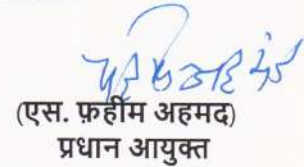 (एस. फ़हीम अहमद)
प्रधान आयुक्त